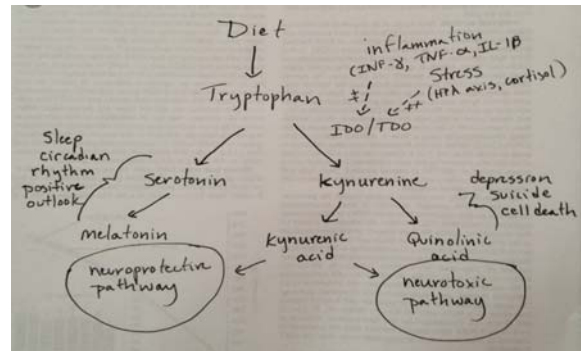 Diet
inflammation
(INF-γ, TNF-α, IL-1B
Stress
(HPA axis, cortisol)
Tryptophan
++
++
IDO/TDO
Sleep
circadian
rhythm
positive
outlook
Serotonin
Kynurenine
depression
suicide
cell death
melatonin
kynurenic
acid
Quinolinic
acid
neuroprotective
pathway
neurotoxic
pathway